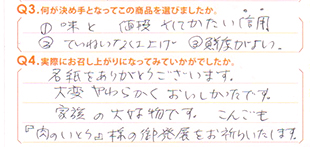 Q3.何が決め手となってこの商品を選びましたか。
①味と 直接 信用
②ていねいな仕上げ ③鮮度がよい。
Q4.実際にお召し上がりになってみていかがでしたか。
名紙をありがとうございます。
大変やわらかくおいしかったです。
家族の大好物です。こんごも
『肉のいとう』様の御発展をお祈りいたします。